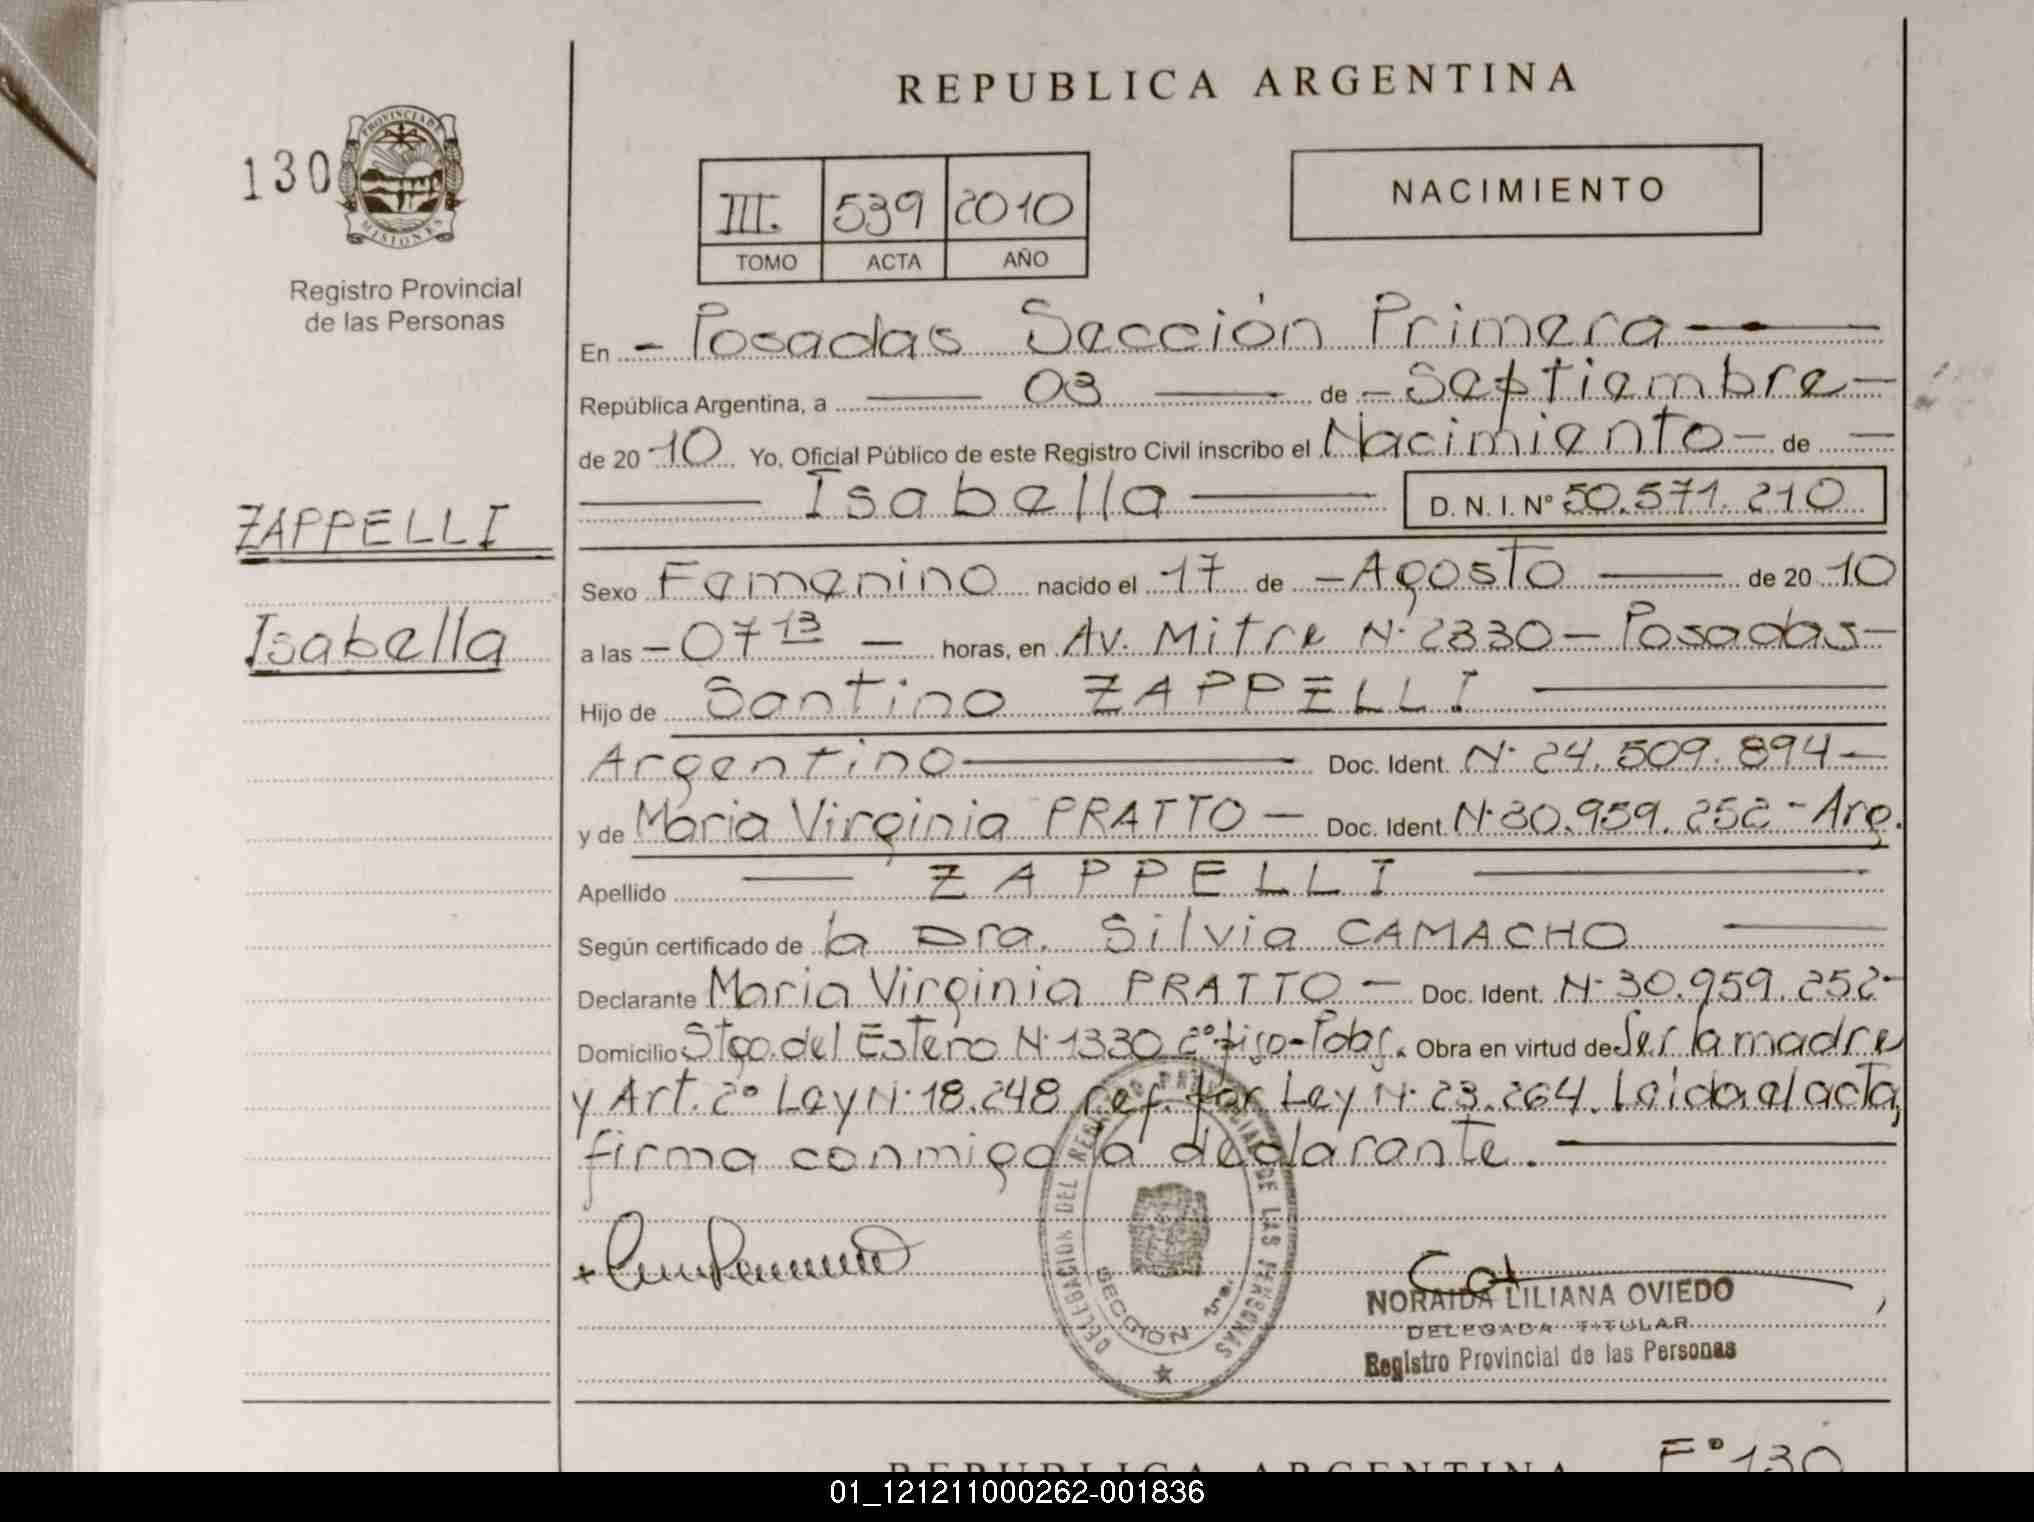 REPUBLICA ARGENTINA
130
PROVINCIA DE
MISIONES
Registro Provincial
de las Personas
III. 539 2010
TOMO ACTA AÑO
NACIMIENTO
En - Posadas Sección Primera
República Argentina, a 03 de - Septiembre -
de 20 10 Yo, Oficial Público de este Registro Civil inscribo el Nacimiento - de
Isabella D. N. I. N° 50.571.210
ZAPPELLI
Isabella
Sexo Femenino nacido el 17 de - Agosto de 20 10
a las - 07 13 - horas, en Av. Mitre N° 2330 - Posadas -
Hijo de Santino ZAPPELLI
Argentino Doc. Ident. N° 24.509.894 -
y de Maria Virginia PRATTO - Doc. Ident. N° 30.959.252 - Arg.
Apellido ZAPPELLI
Según certificado de la Dra. Silvia CAMACHO
Declarante Maria Virginia PRATTO - Doc. Ident. N° 30.959.252 -
Domicilio Stgo. del Estero N° 1330 2° piso - Pdas. Obra en virtud de Ser la madre
y Art. 2° Ley N° 18.248 ref. por Ley N° 23.264. Leida el acta,
firma conmigo la declarante.
DELEGACION DEL REGISTRO PROVINCIAL DE LAS PERSONAS
SECCION 1ra.
NORAIDA LILIANA OVIEDO
DELEGADA TITULAR
Registro Provincial de las Personas
REPUBLICA ARGENTINA F° 130
01_121211000262-001836